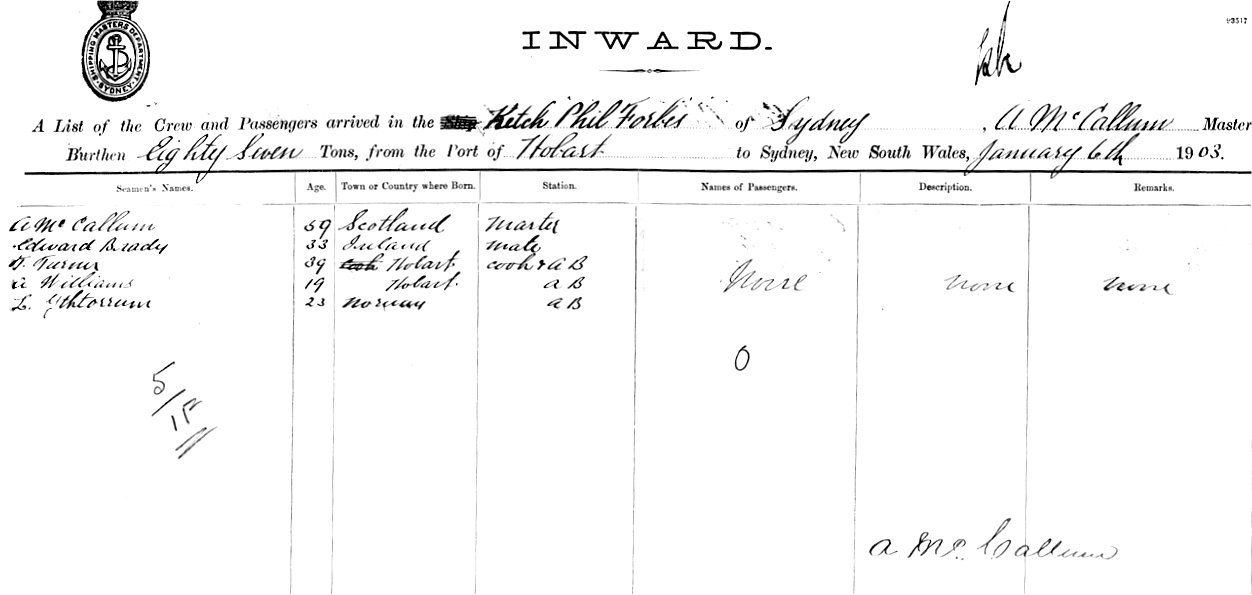 SHIPPING MASTERS DEPARTMENT SYDNEY
INWARD.
A List of the Crew and Passengers arrived in the Ship Ketch Phil Forbes of Sydney, A McCallum Master
Burthen Eighty Seven Tons, from the Port of Hobart to Sydney, New South Wales, January 6th 1903.
Seamen's Names. Age. Town or Country where Born. Station. Names of Passengers. Description. Remarks.
A McCallum 59 Scotland Master
Edward Brady 33 Ireland mate
Turner 39 cook Hobart cook & AB
a Williams 19 Hobart a B None none none
L. 23 Norway a B
0
5
a Mc. Callum